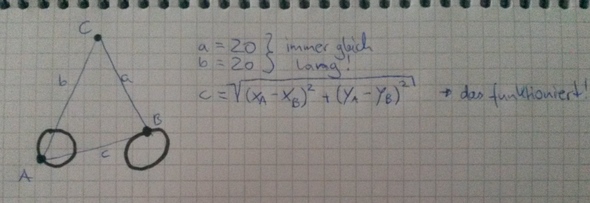 C
a = 20 } immer gleich
b = 20 } lang!
b
a
c = √(x_A - x_B)² + (y_A - y_B)² → das funktioniert!
B
c
A